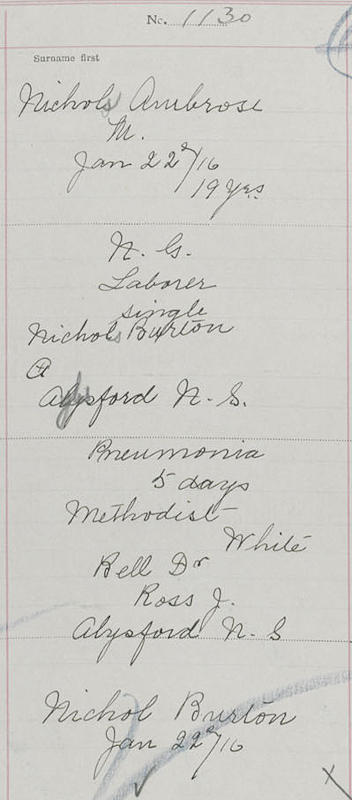 No. 1130
Surname first
Nichols Ambrose
M.
Jan 22ⁿᵈ/16
19 yrs
N. S.
Laborer
single
Nichols Burton
a
Alysford N. S.
Pneumonia
5 days
Methodist
White
Bell Dr
Ross J.
Alysford N. S
Nichol Burton
Jan 22ⁿᵈ/16